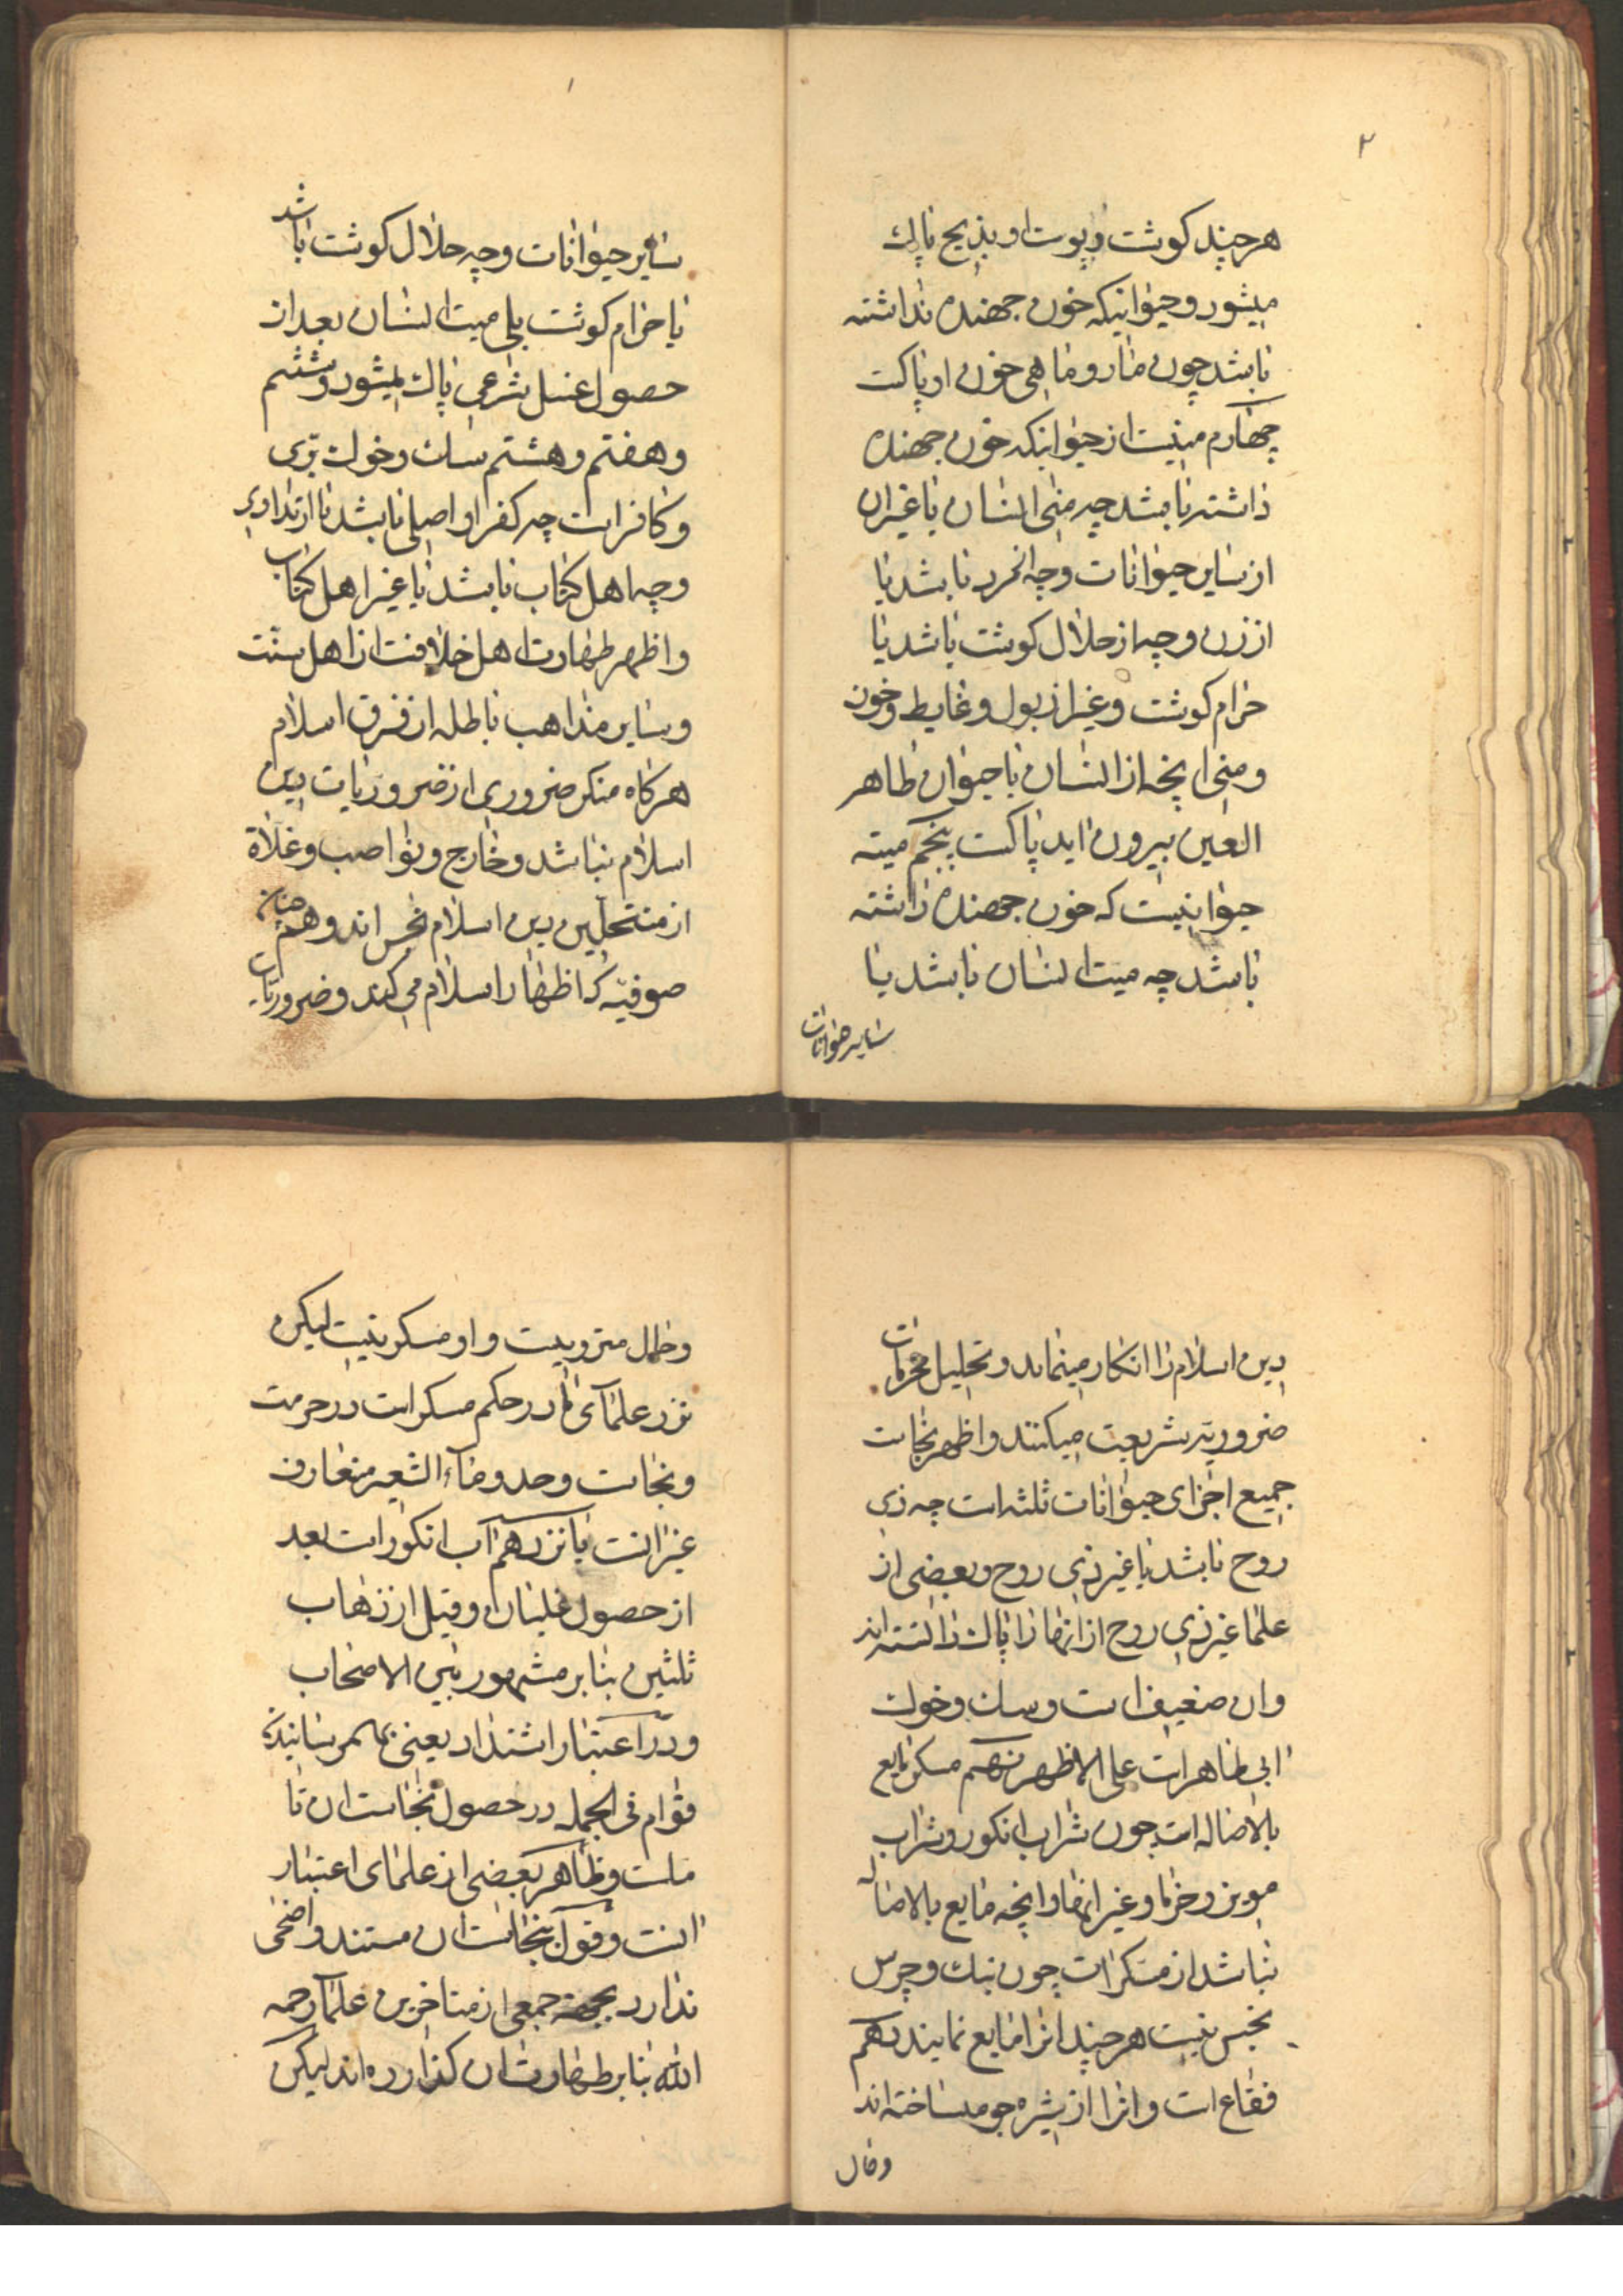 ۲
هر چند کوشت و پوست او بذبح پاک
میشود و حیوانیکه خون جهنده نداشته
باشد چون مار و ماهی خون او پاکست
چهارم منیست از حیوانیکه خون جهنده
داشته باشد چه منی انسان یا غیر ان
از سایر حیوانات و چه از نر باشد یا
از زن و چه از حلال کوشت باشد یا
حرام کوشت و غیر از بول و غایط و خون
و منی انچه از انسان یا حیوان طاهر
العین بیرون اید پاکست پنجم میته
حیوانیست که خون جهنده داشته
باشد چه میت انسان باشد یا
سایر حیوانات
۱
سایر حیوانات و چه حلال کوشت باشد
یا حرام کوشت بلی میت انسان بعد از
حصول غسل شرعی پاک میشود و ششم
و هفتم و هشتم سک و خوک برّی
و کافر است چه کفر او اصلی باشد یا ارتدادی
و چه اهل کتاب باشد یا غیر اهل کتاب
و اظهر طهارت اهل خلافست از اهل سنّت
و سایر مذاهب باطله از فرق اسلام
هر کاه منکر ضروری از ضروریات دین
اسلام نباشد و خارج و نواصب و غلاة
از منتحلین دین اسلام نجس اند و همچنان
صوفیّه که اظهار اسلام می کنند و ضروریّات
دین اسلام را انکار مینماید و تحلیل محرّمات
ضروریّه شریعت میکنند و اظهر نجاست
جمیع اجزای حیوانات ثلثه است چه ذی
روح باشد یا غیر ذی روح و بعضی از
علما غیر ذی روح از انها را پاک دانسته اند
و ان ضعیف است و سک و خوک
ابی طاهر است علی الاظهر نهم مسکر مایع
بالاصاله است چون شراب انکور و شراب
مویز و خرما و غیر انها و انچه مایع بالاصاله
نباشد از مسکرات چون بنک و چرس
نجس نیست هر چند انرا مایع نمایند دهم
فقاع است و انرا از شیره جو میساخته اند
و حال
و حال متروبیت و او مسکر نیست لیکن
نزد علمآی ما در حکم مسکر است در حرمت
و نجاست و حد و مآء الشعیر متعارف
غیر انست یانزدهم آب انکور است بعد
از حصول غلیان و قبل از ذهاب
ثلثین بنا بر مشهور بین الاصحاب
و در اعتبار اشتداد یعنی بهمرسانیدن
قوام فی الجمله در حصول نجاست ان تا
ملست و ظاهر بعضی از علمای اعتبار
انست و قول بنجاست ان مستند واضحی
ندارد بجهة جمعی از متاخرین علمآ رحمه
الله بنا بر طهارت ان کذارده اند لیکن